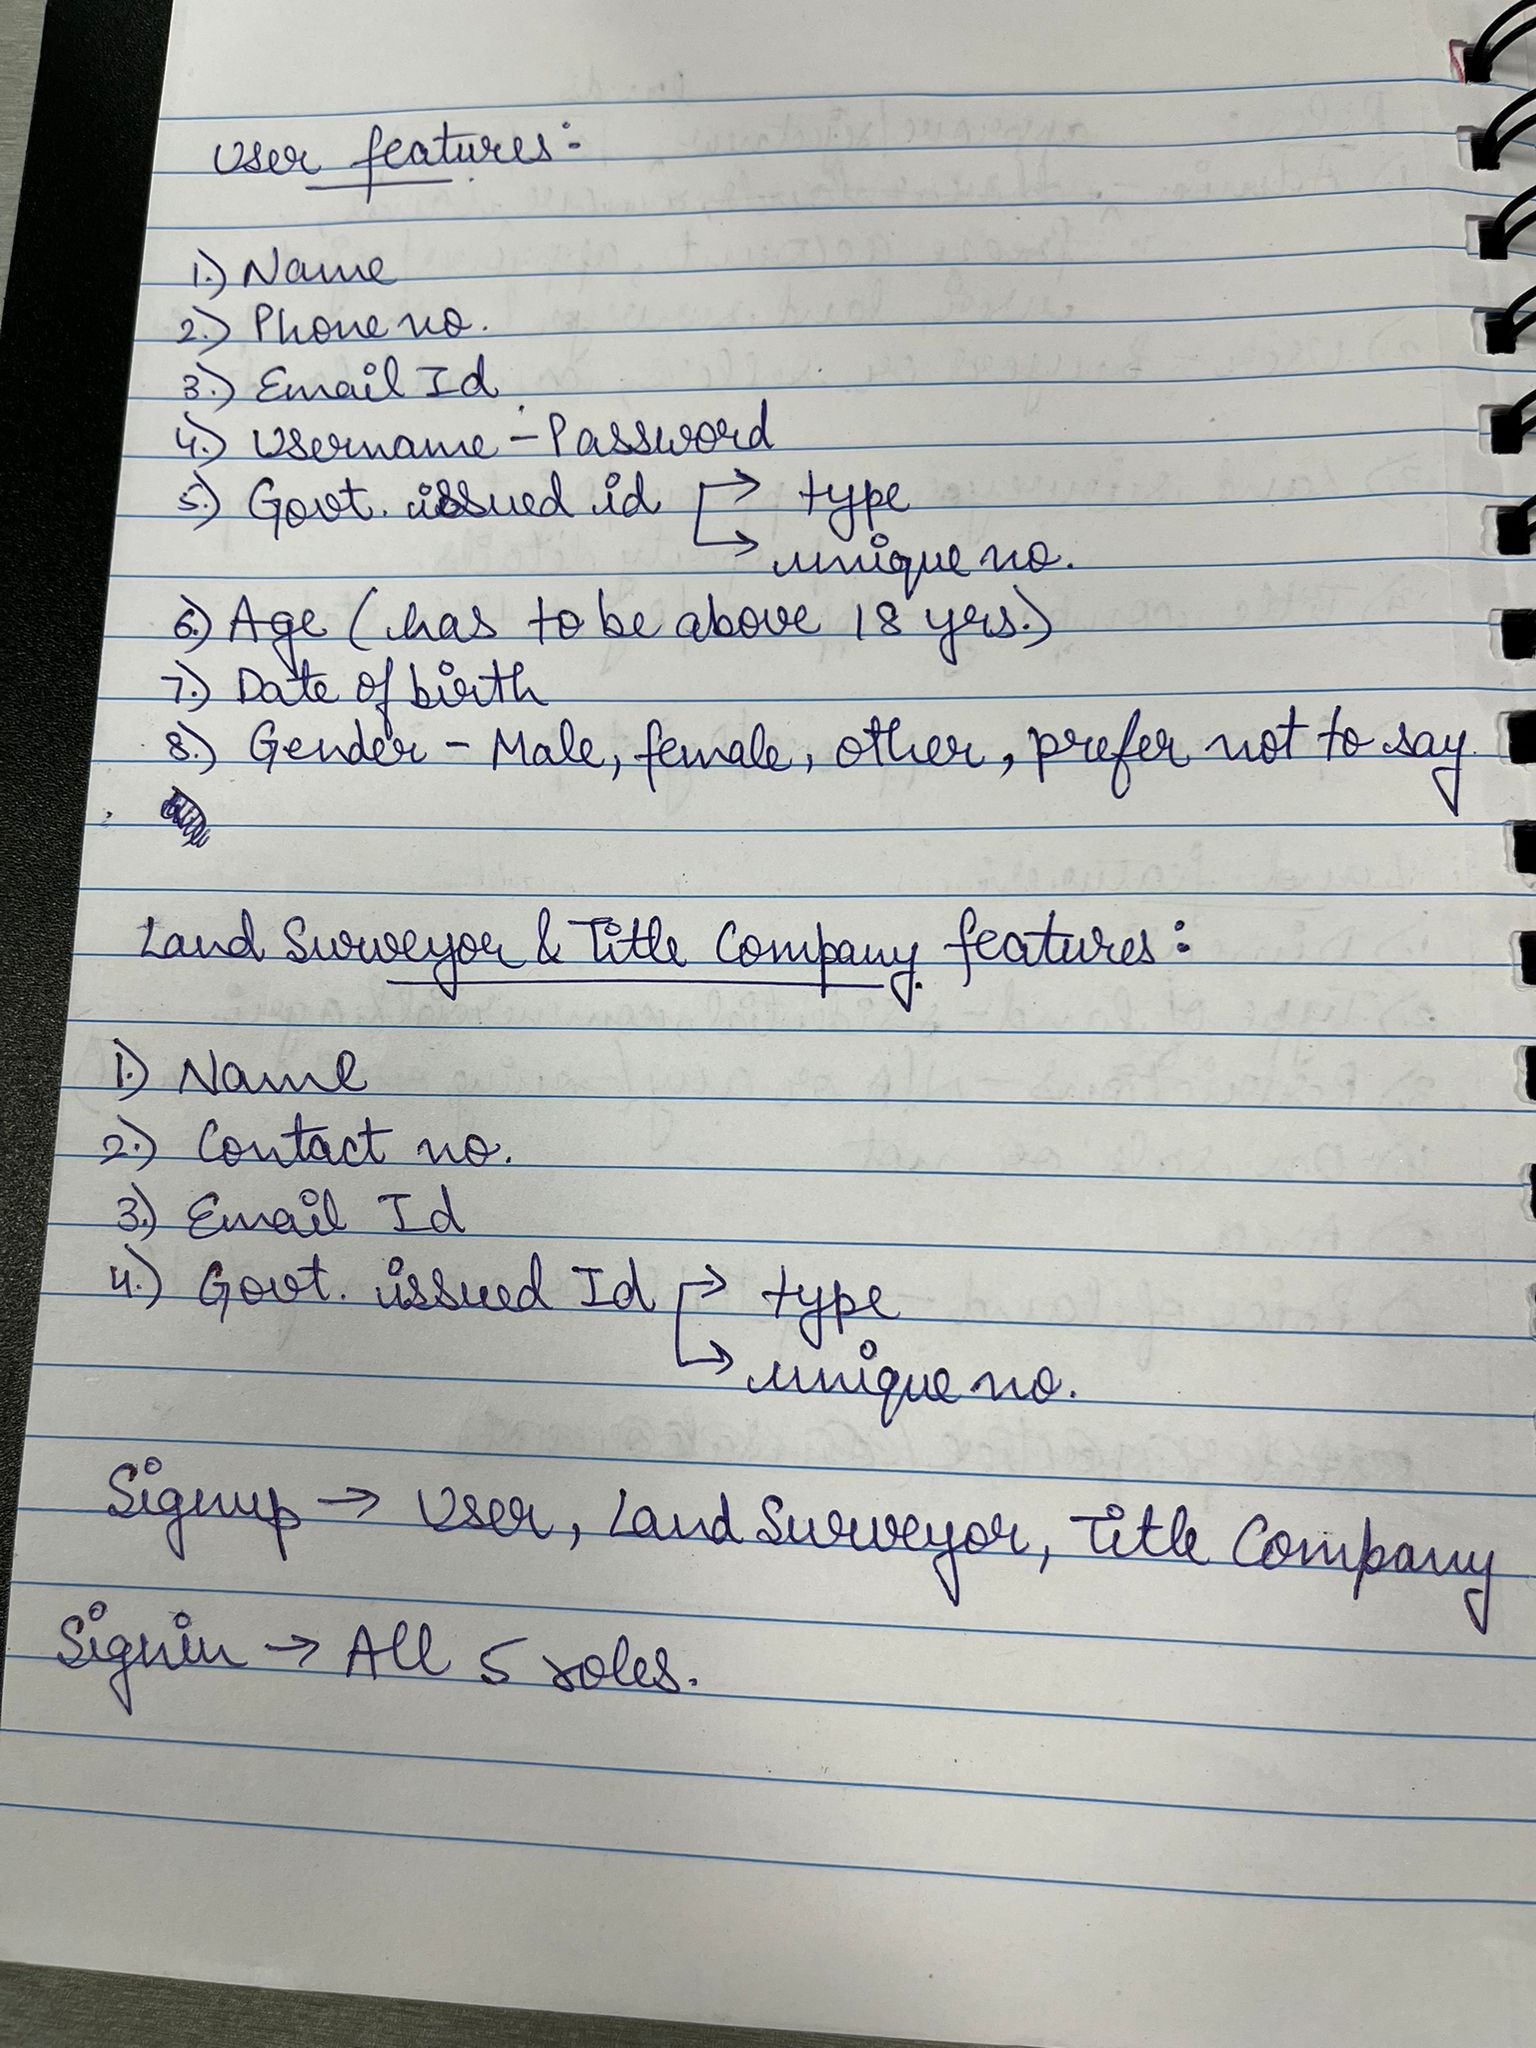 User features:
1.) Name
2.) Phone no.
3.) Email Id
4.) Username - Password
5.) Govt. issued id → type
→ unique no.
6.) Age (has to be above 18 yrs.)
7.) Date of birth
8.) Gender - Male, female, other, prefer not to say
Land Surveyor & Title Company features:
1.) Name
2.) Contact no.
3.) Email Id
4.) Govt. issued Id → type
→ unique no.
Signup → User, Land Surveyor, Title Company
Signin → All 5 roles.